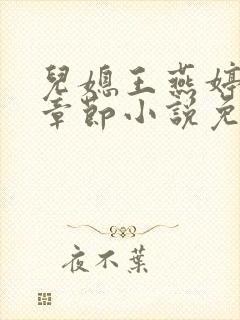 兒媳王燕婷
章節小說免
夜不葉